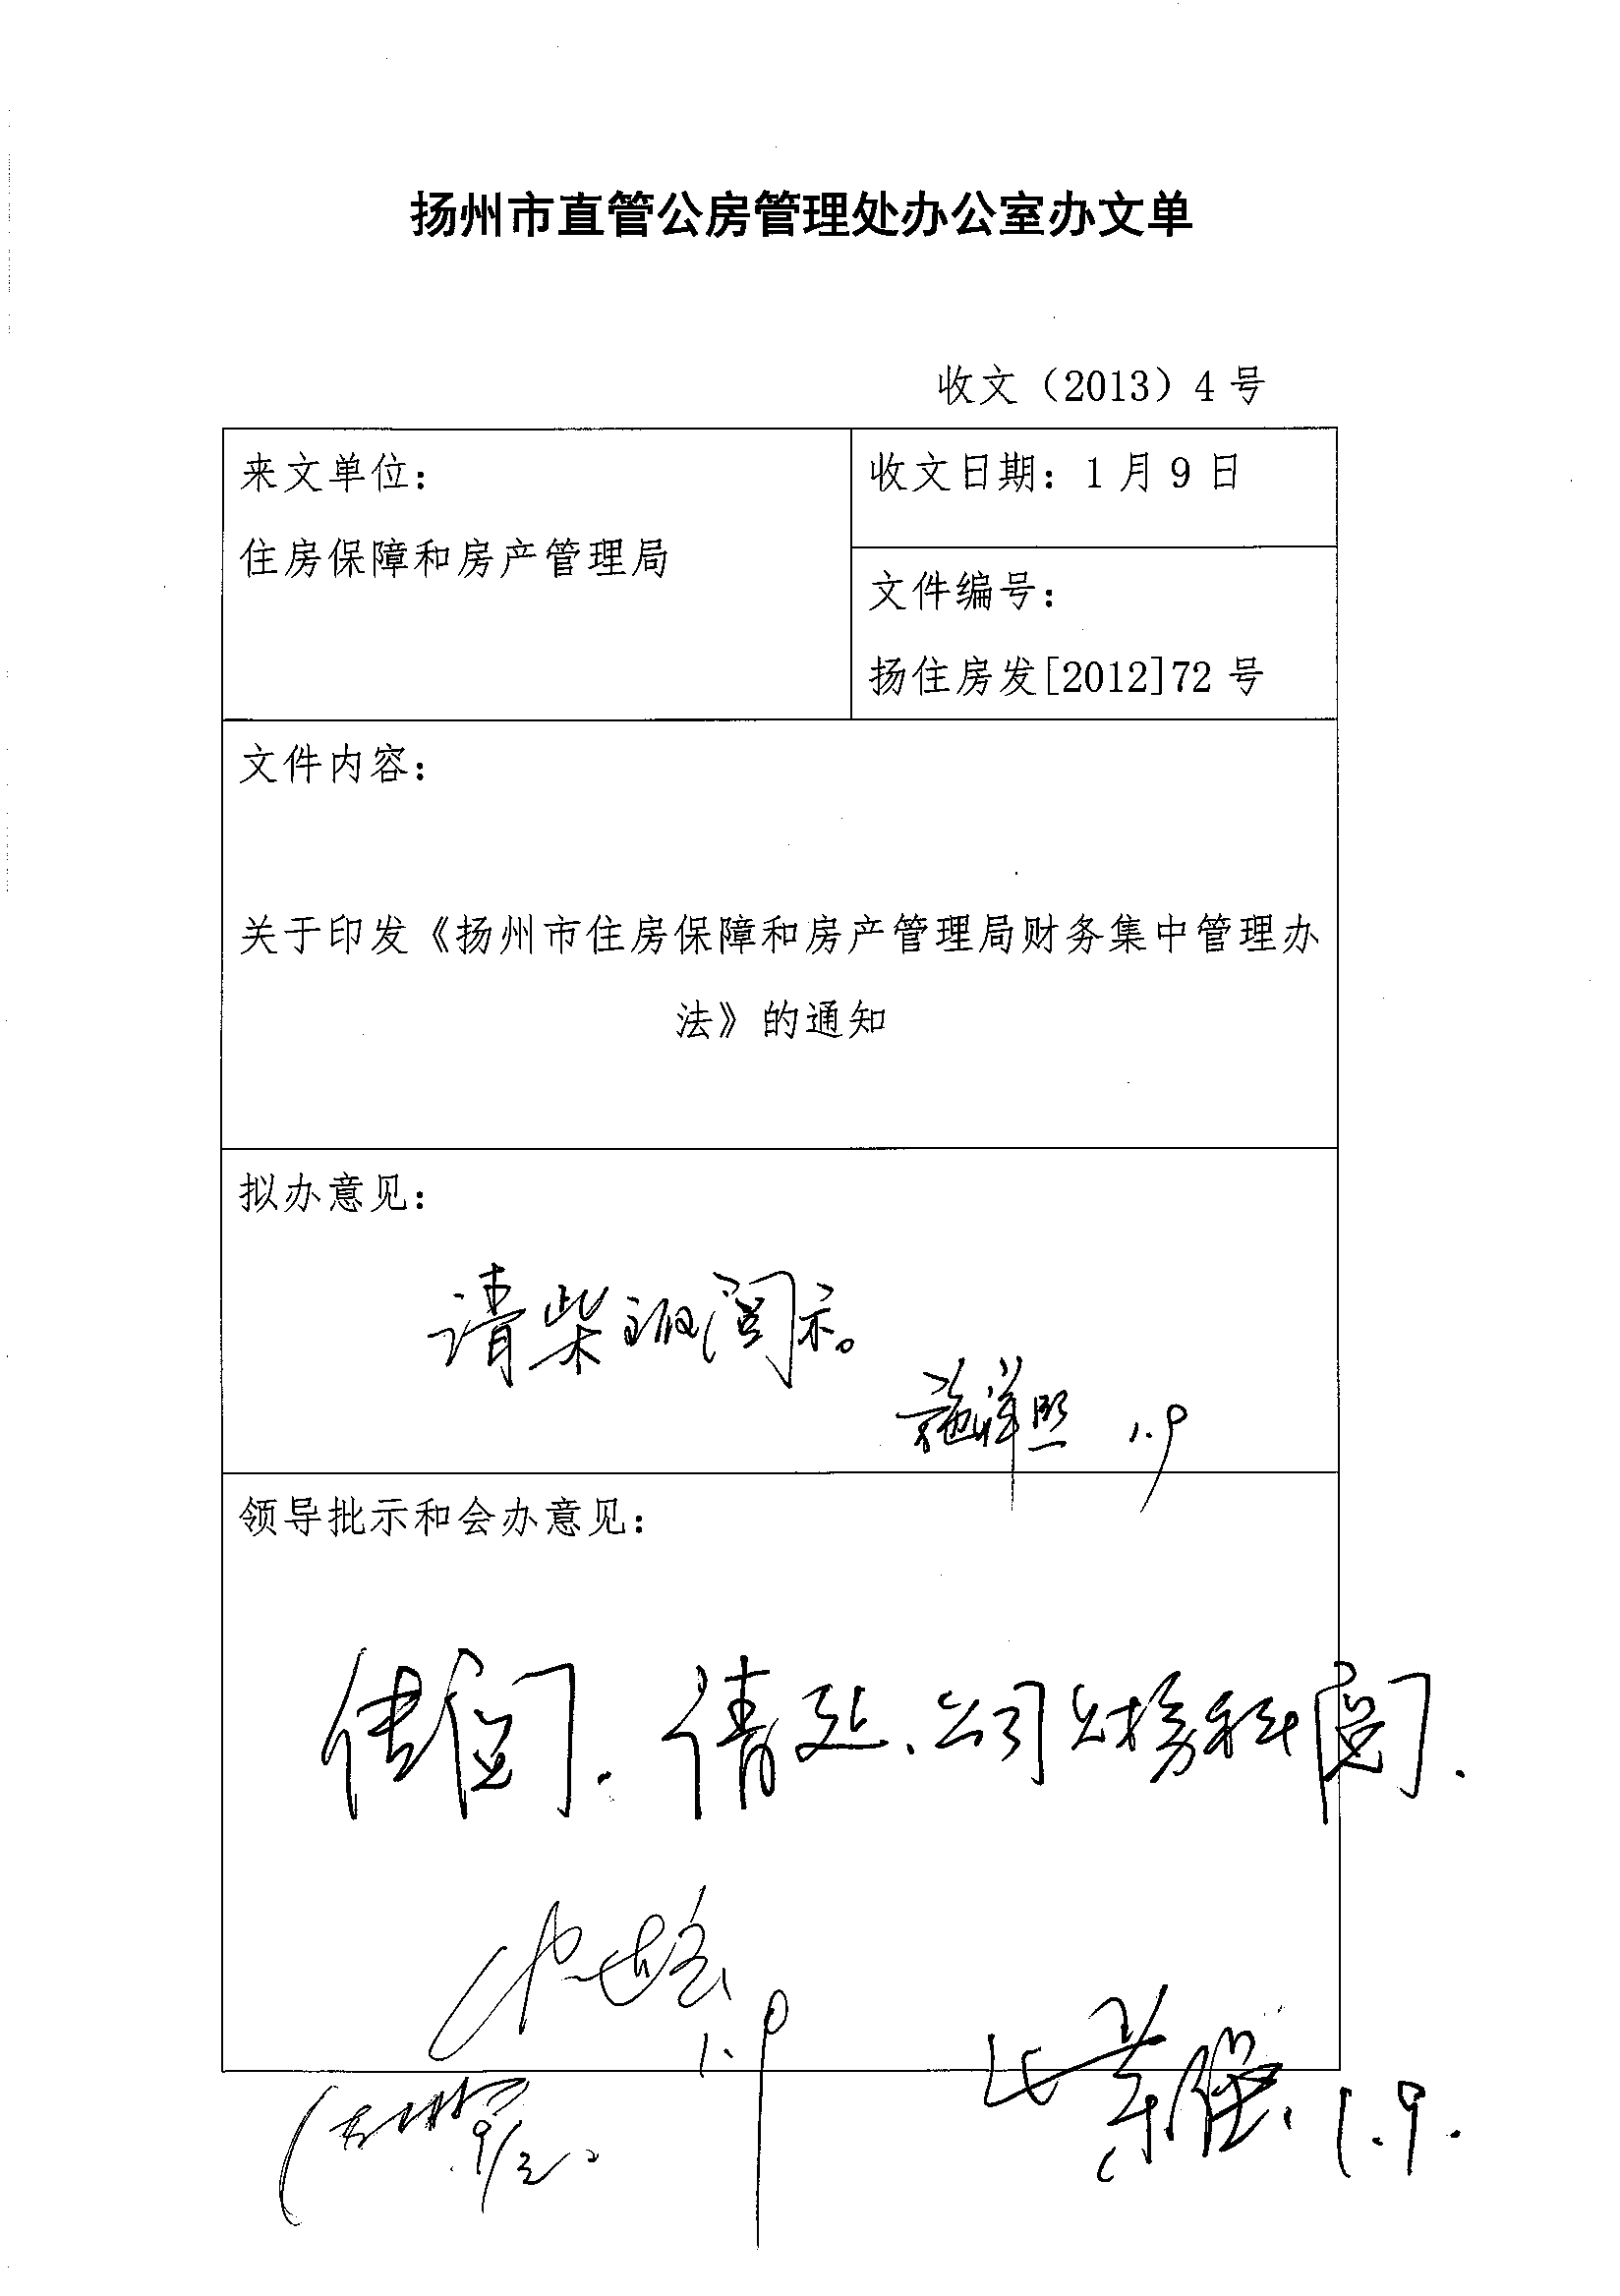 扬州市直管公房管理处办公室办文单
收文（2013）4 号
来文单位：
住房保障和房产管理局
收文日期：1 月 9 日
文件编号：
扬住房发[2012]72 号
文件内容：
关于印发《扬州市住房保障和房产管理局财务集中管理办
法》的通知
拟办意见：
请柴主任阅示。
施祥照 1.9
领导批示和会办意见：
传阅. 请处、公司财务科阅.
1.9
1.9.